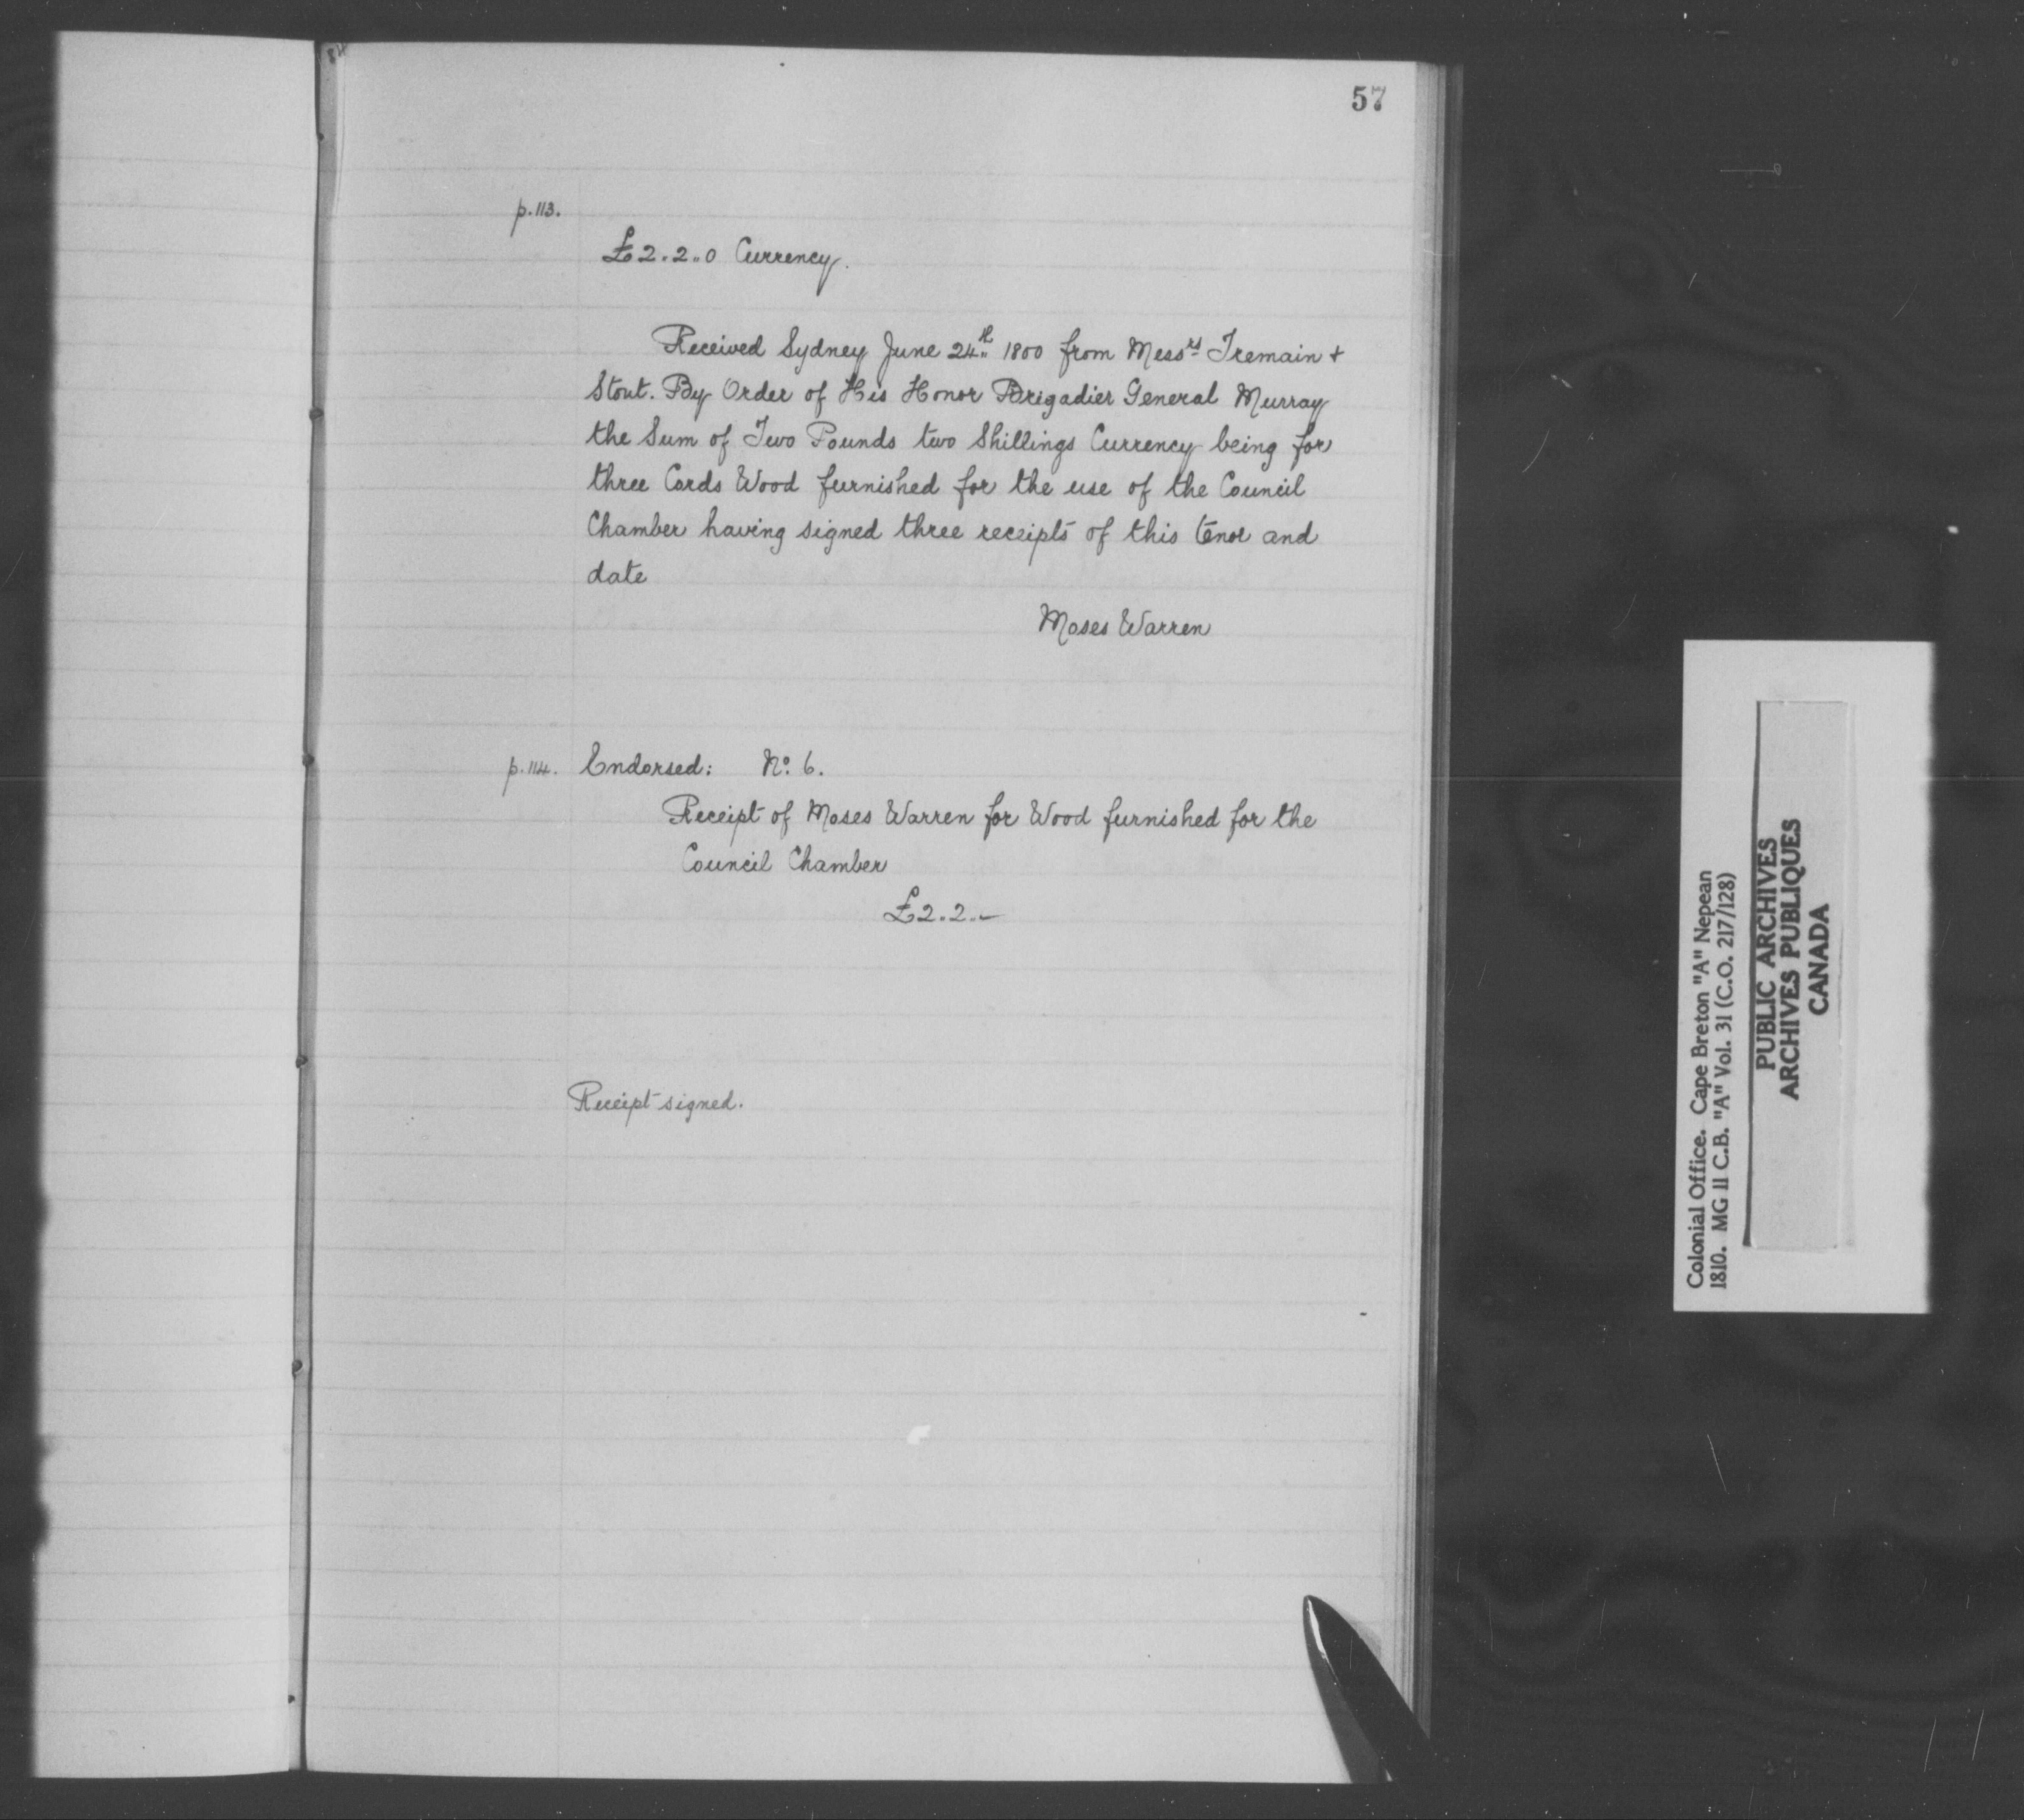 57
p.113.
£2.2.0 Currency.
Received Sydney June 24th 1800 from Messrs Tremain +
Stout. By Order of His Honor Brigadier General Murray
the Sum of Two Pounds two Shillings Currency being for
three Cords Wood furnished for the use of the Council
Chamber having signed three receipts of this tenor and
date
Moses Warren
p.114. Endorsed: No. 6.
Receipt of Moses Warren for Wood furnished for the
Council Chamber
£2.2.-
Receipt signed.
Colonial Office. Cape Breton "A" Nepean
1810. MG 11 C.B. "A" Vol. 31 (C.O. 217/128)
PUBLIC ARCHIVES
ARCHIVES PUBLIQUES
CANADA